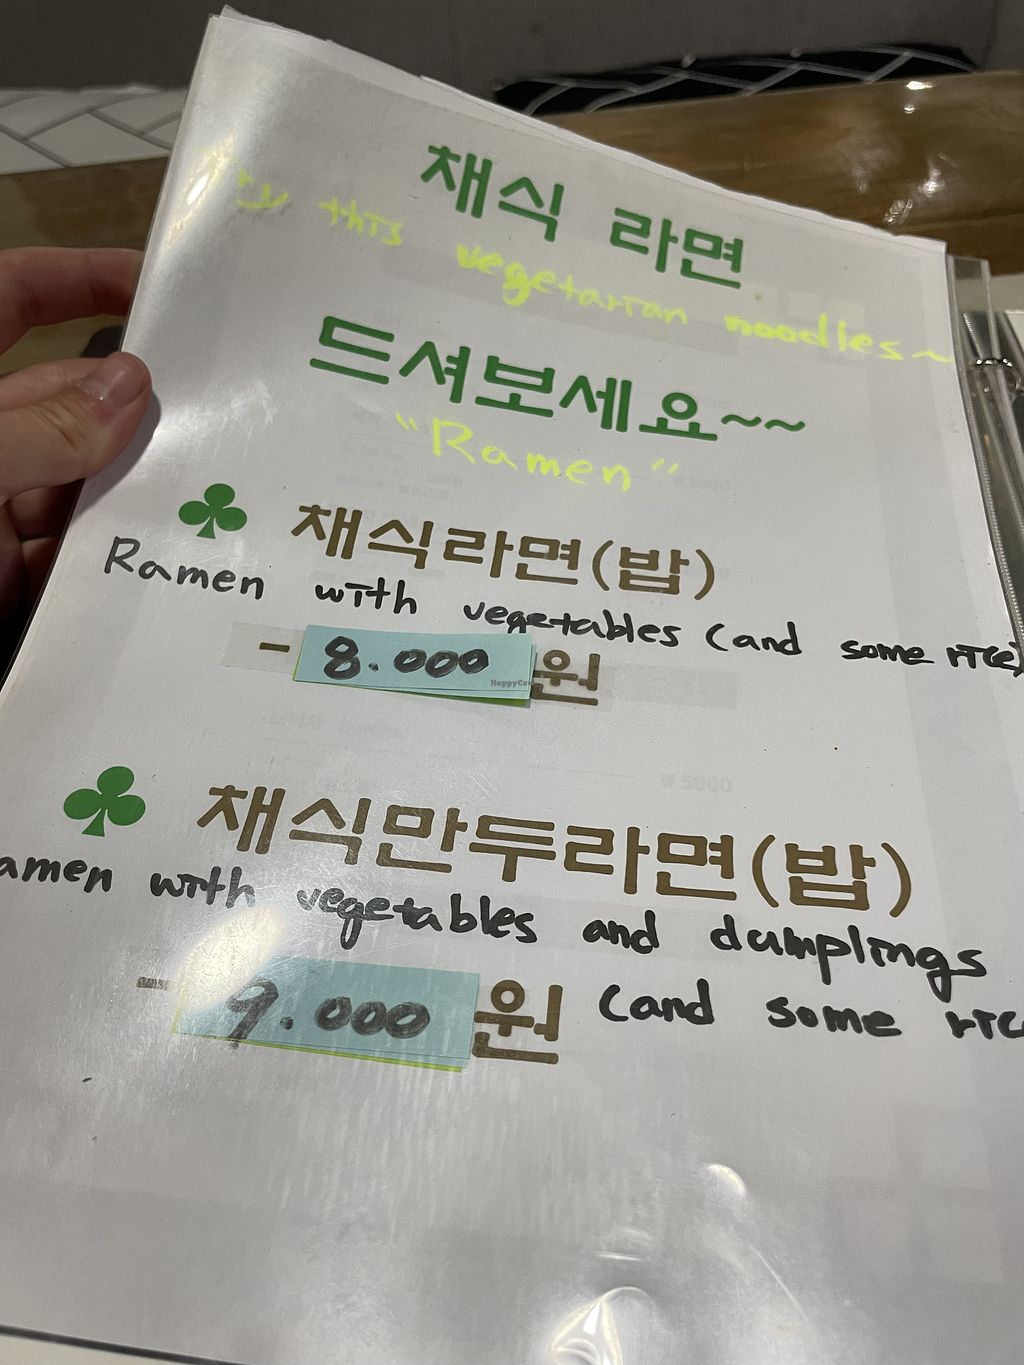 채식 라면
this vegetarian noodles~
드셔보세요~~
"Ramen"
채식라면(밥)
Ramen with vegetables (and some rice)
- 8.000원
HappyCow
채식만두라면(밥)
amen with vegetables and dumplings
- 9.000원 (and some ric
₩5900